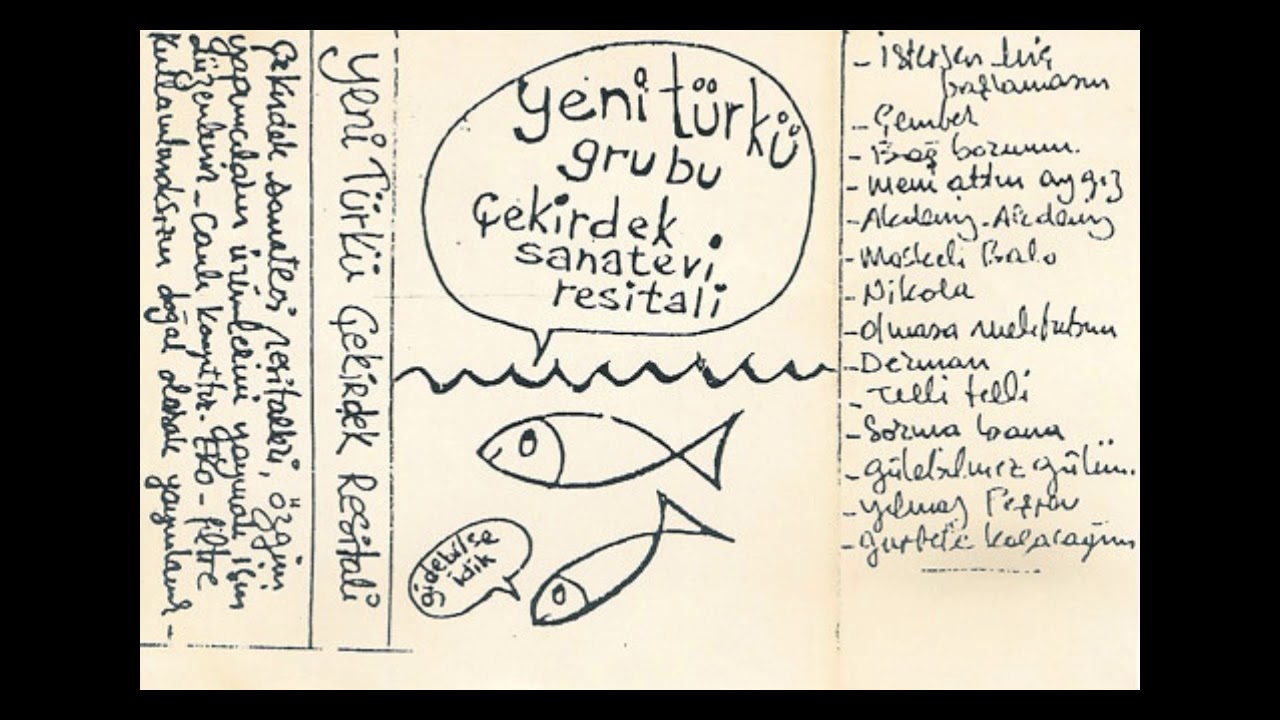 Çekirdek sanatevi resitalleri, özgün
yapımcıların ürünlerini yaymak için
düzenlenir - Canlı kayıttır. Eko - filtre
kullanılmaksızın doğal olarak yayınlanır -
Yeni Türkü Çekirdek Resitali
yeni türkü
grubu
Çekirdek
sanatevi
resitali
gidebilse
idik
- İstersen hiç
başlamasın
- Çember
- Bağ bozumu.
- Meni attın ay gız
- Akdeniz - Akdeniz
- Maskeli Balo
- Nikola
- Olmasa mektubun
- Derman
- Telli telli
- Sorma bana
- Gülebilmez gülüm.
- Yılmaz
- Gurbete kaçacağım